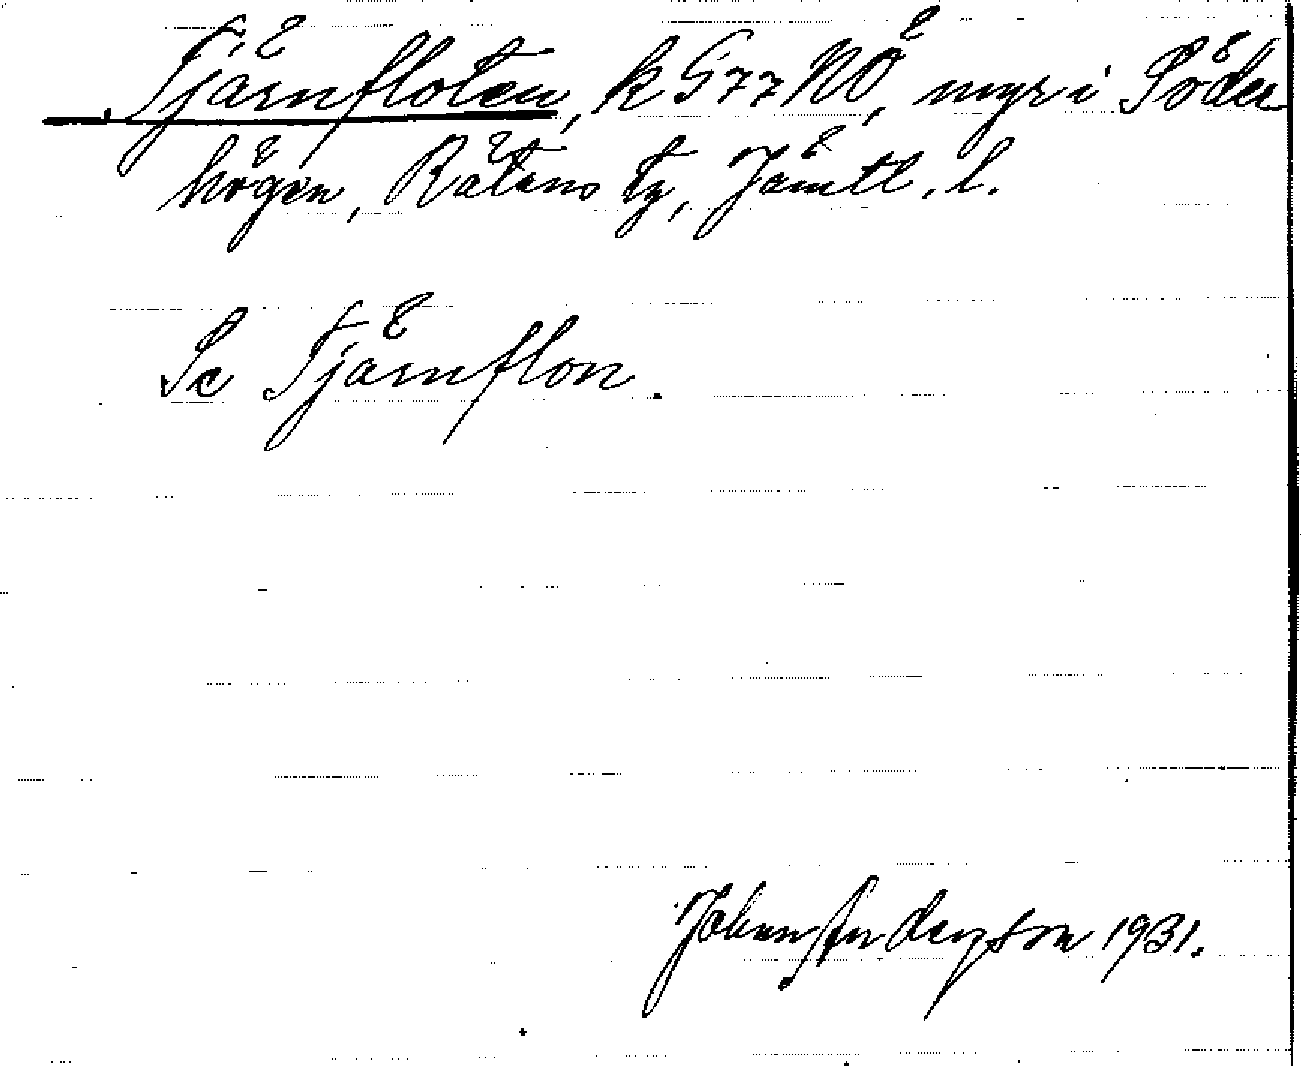 Tjärnfloten, k G 77 NÖ, myr i Söder
högen, Rätans tg, Jämtl. l.
Se Tjärnflon.
Johan Andersson 1931.